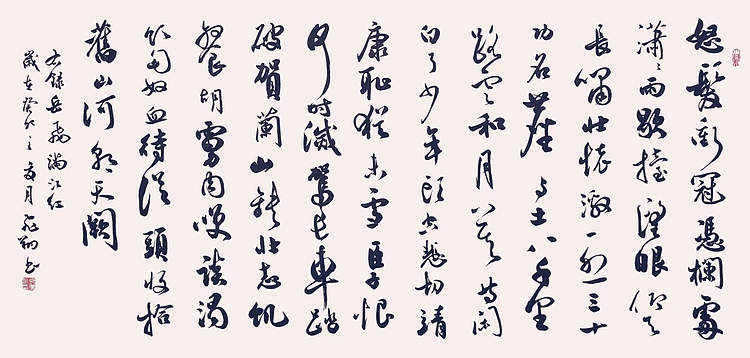 怒髮衝冠憑欄處
瀟々雨歇擡望眼仰天
長嘯壯懷激烈三十
功名塵與土八千里
路雲和月莫等閒
白了少年頭空悲切靖
康恥猶未雪臣子恨
何時滅駕長車踏
破賀蘭山缺壯志飢
餐胡虜肉笑談渴
飲匈奴血待從頭收拾
舊山河朝天闕
右錄岳飛滿江紅
歲在癸之月書